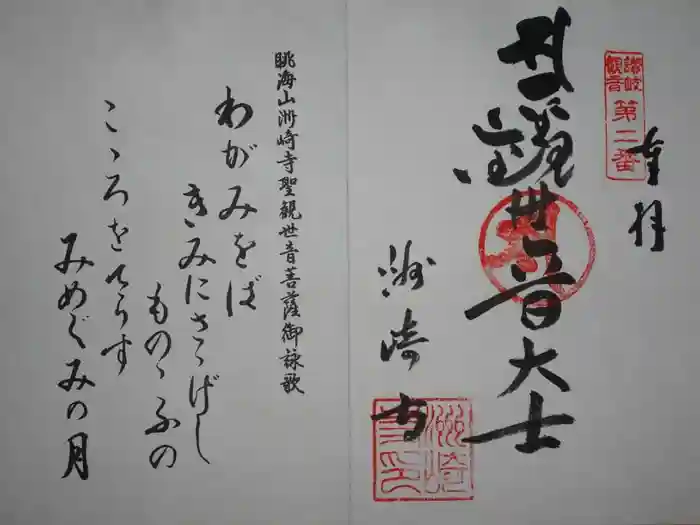 讃岐観音第二番
奉拝
聖観世音大士
洲崎寺
眺海山洲崎寺聖観世音菩薩御詠歌
わがみをば
きみにさゝげし
ものゝふの
こゝろをてらす
みめぐみの月